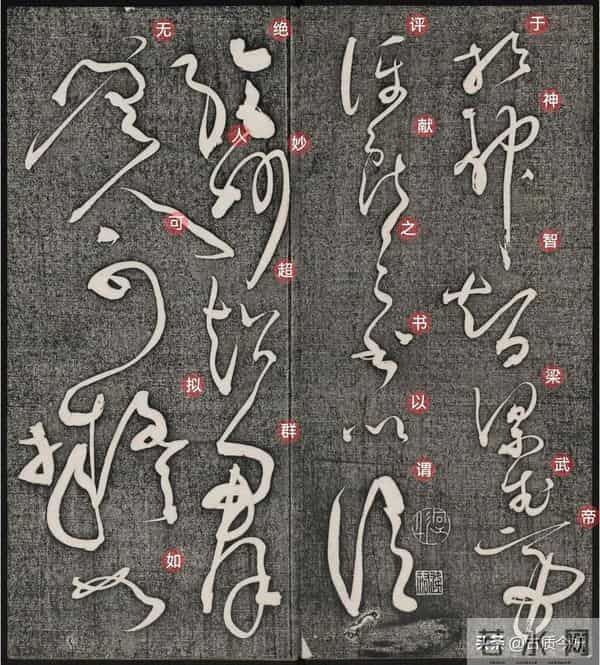 于神智梁武帝
评献之书以谓
绝妙超群
无人可拟如
头条 @古质今